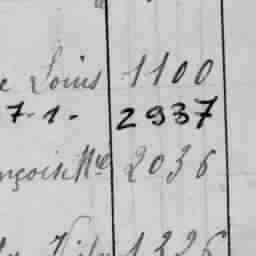 Louis 1100
7-1- 2937
nçoise Mlle 2036
1326